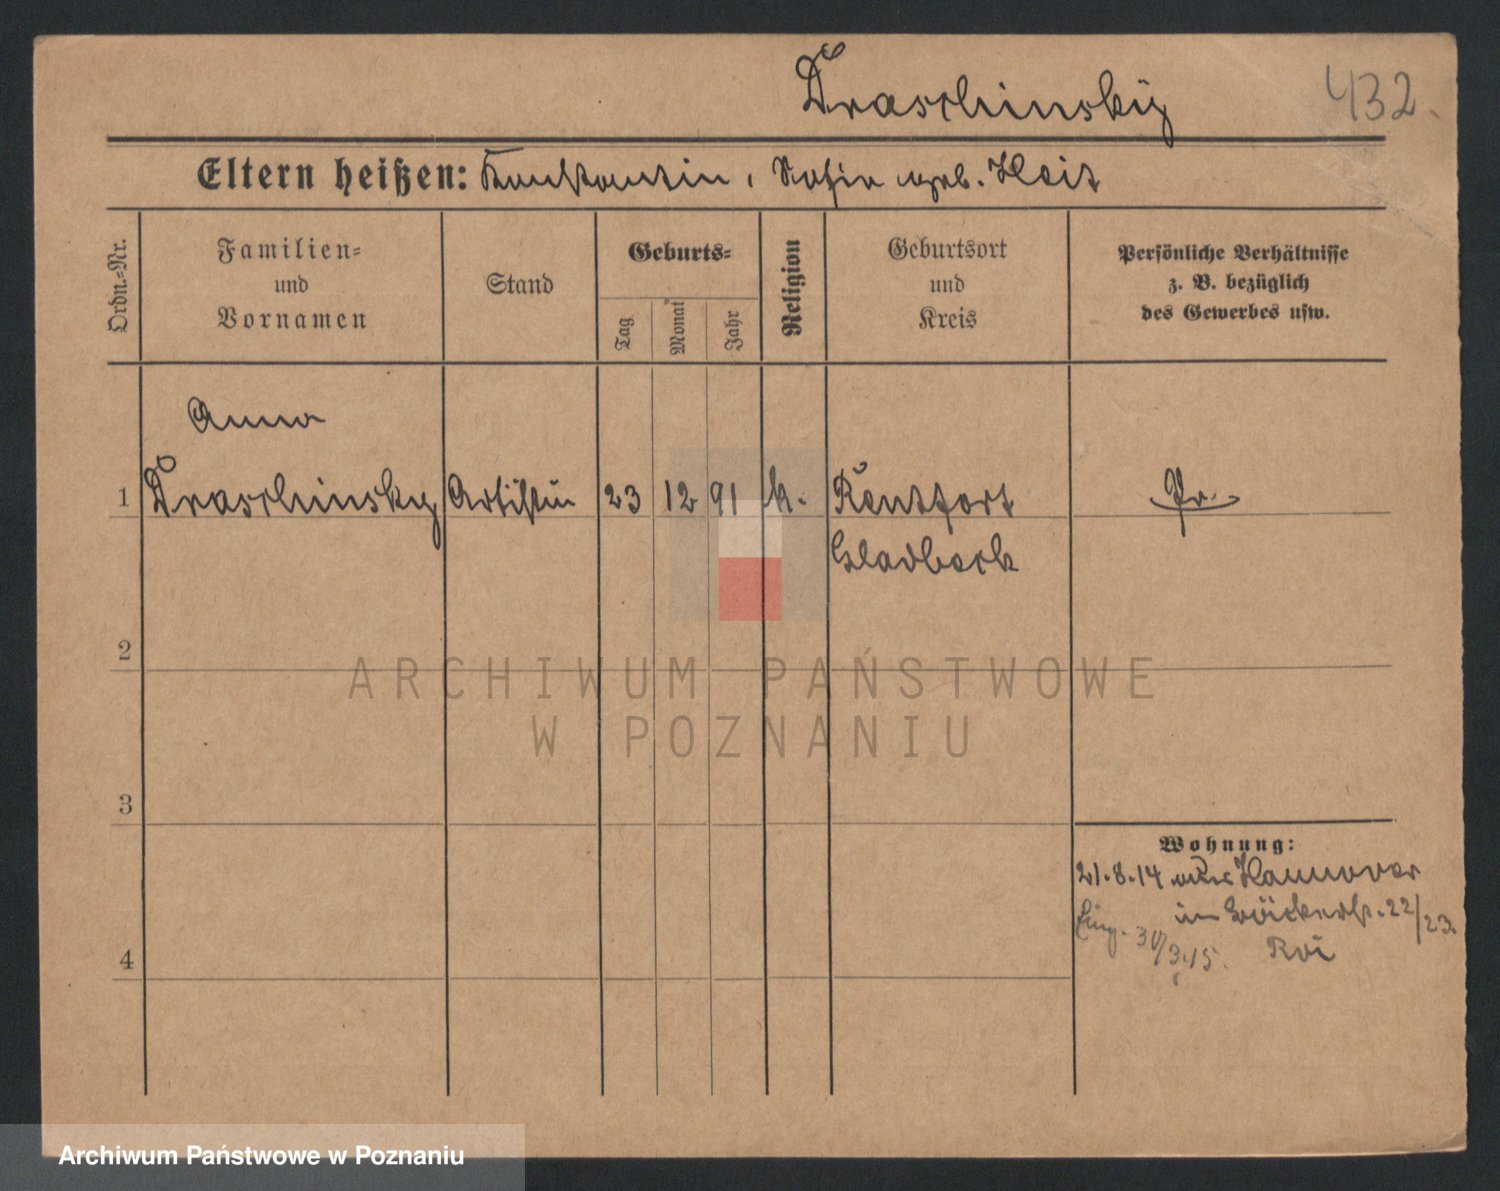 Draschinsky 432.
Eltern heißen: Konstantin, Sofia geb. Heit
Ordn.-Nr.
Familien-
und
Vornamen
Stand
Geburts-
Tag
Monat
Jahr
Religion
Geburtsort
und
Kreis
Persönliche Verhältnisse
z. B. bezüglich
des Gewerbes usw.
Anna
1 Draschinsky Artistin 23 12 91 k. Rentfort Pr.
Gladbeck
2
3
4
Wohnung:
21.8.14 aus Hannover
in Bäckerstr. 22/23.
30/3.15.
ARCHIWUM PAŃSTWOWE
W POZNANIU
Archiwum Państwowe w Poznaniu